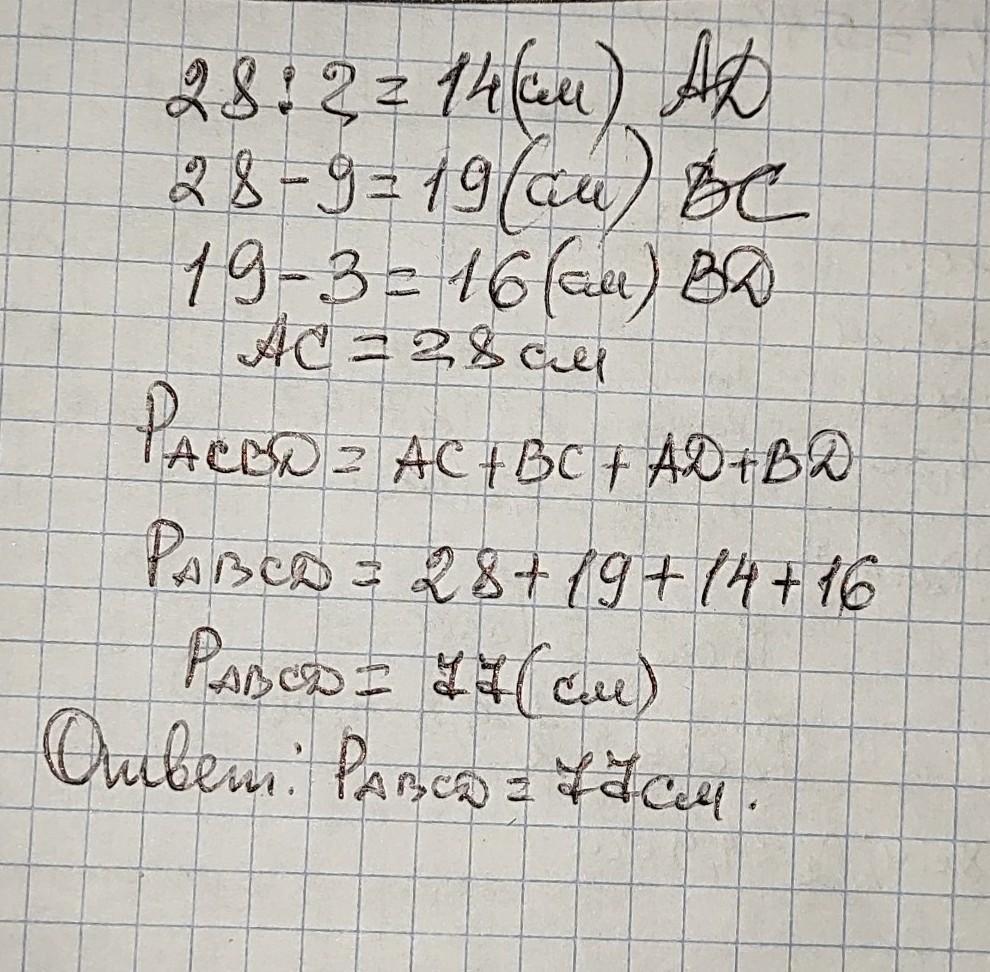 28:2=14(см) AD
28-9=19(см) BC
19-3=16(см) BD
AC=28см
PACBD=AC+BC+AD+BD
PABCD=28+19+14+16
PABCD=77(см)
Ответ: PABCD=77см.